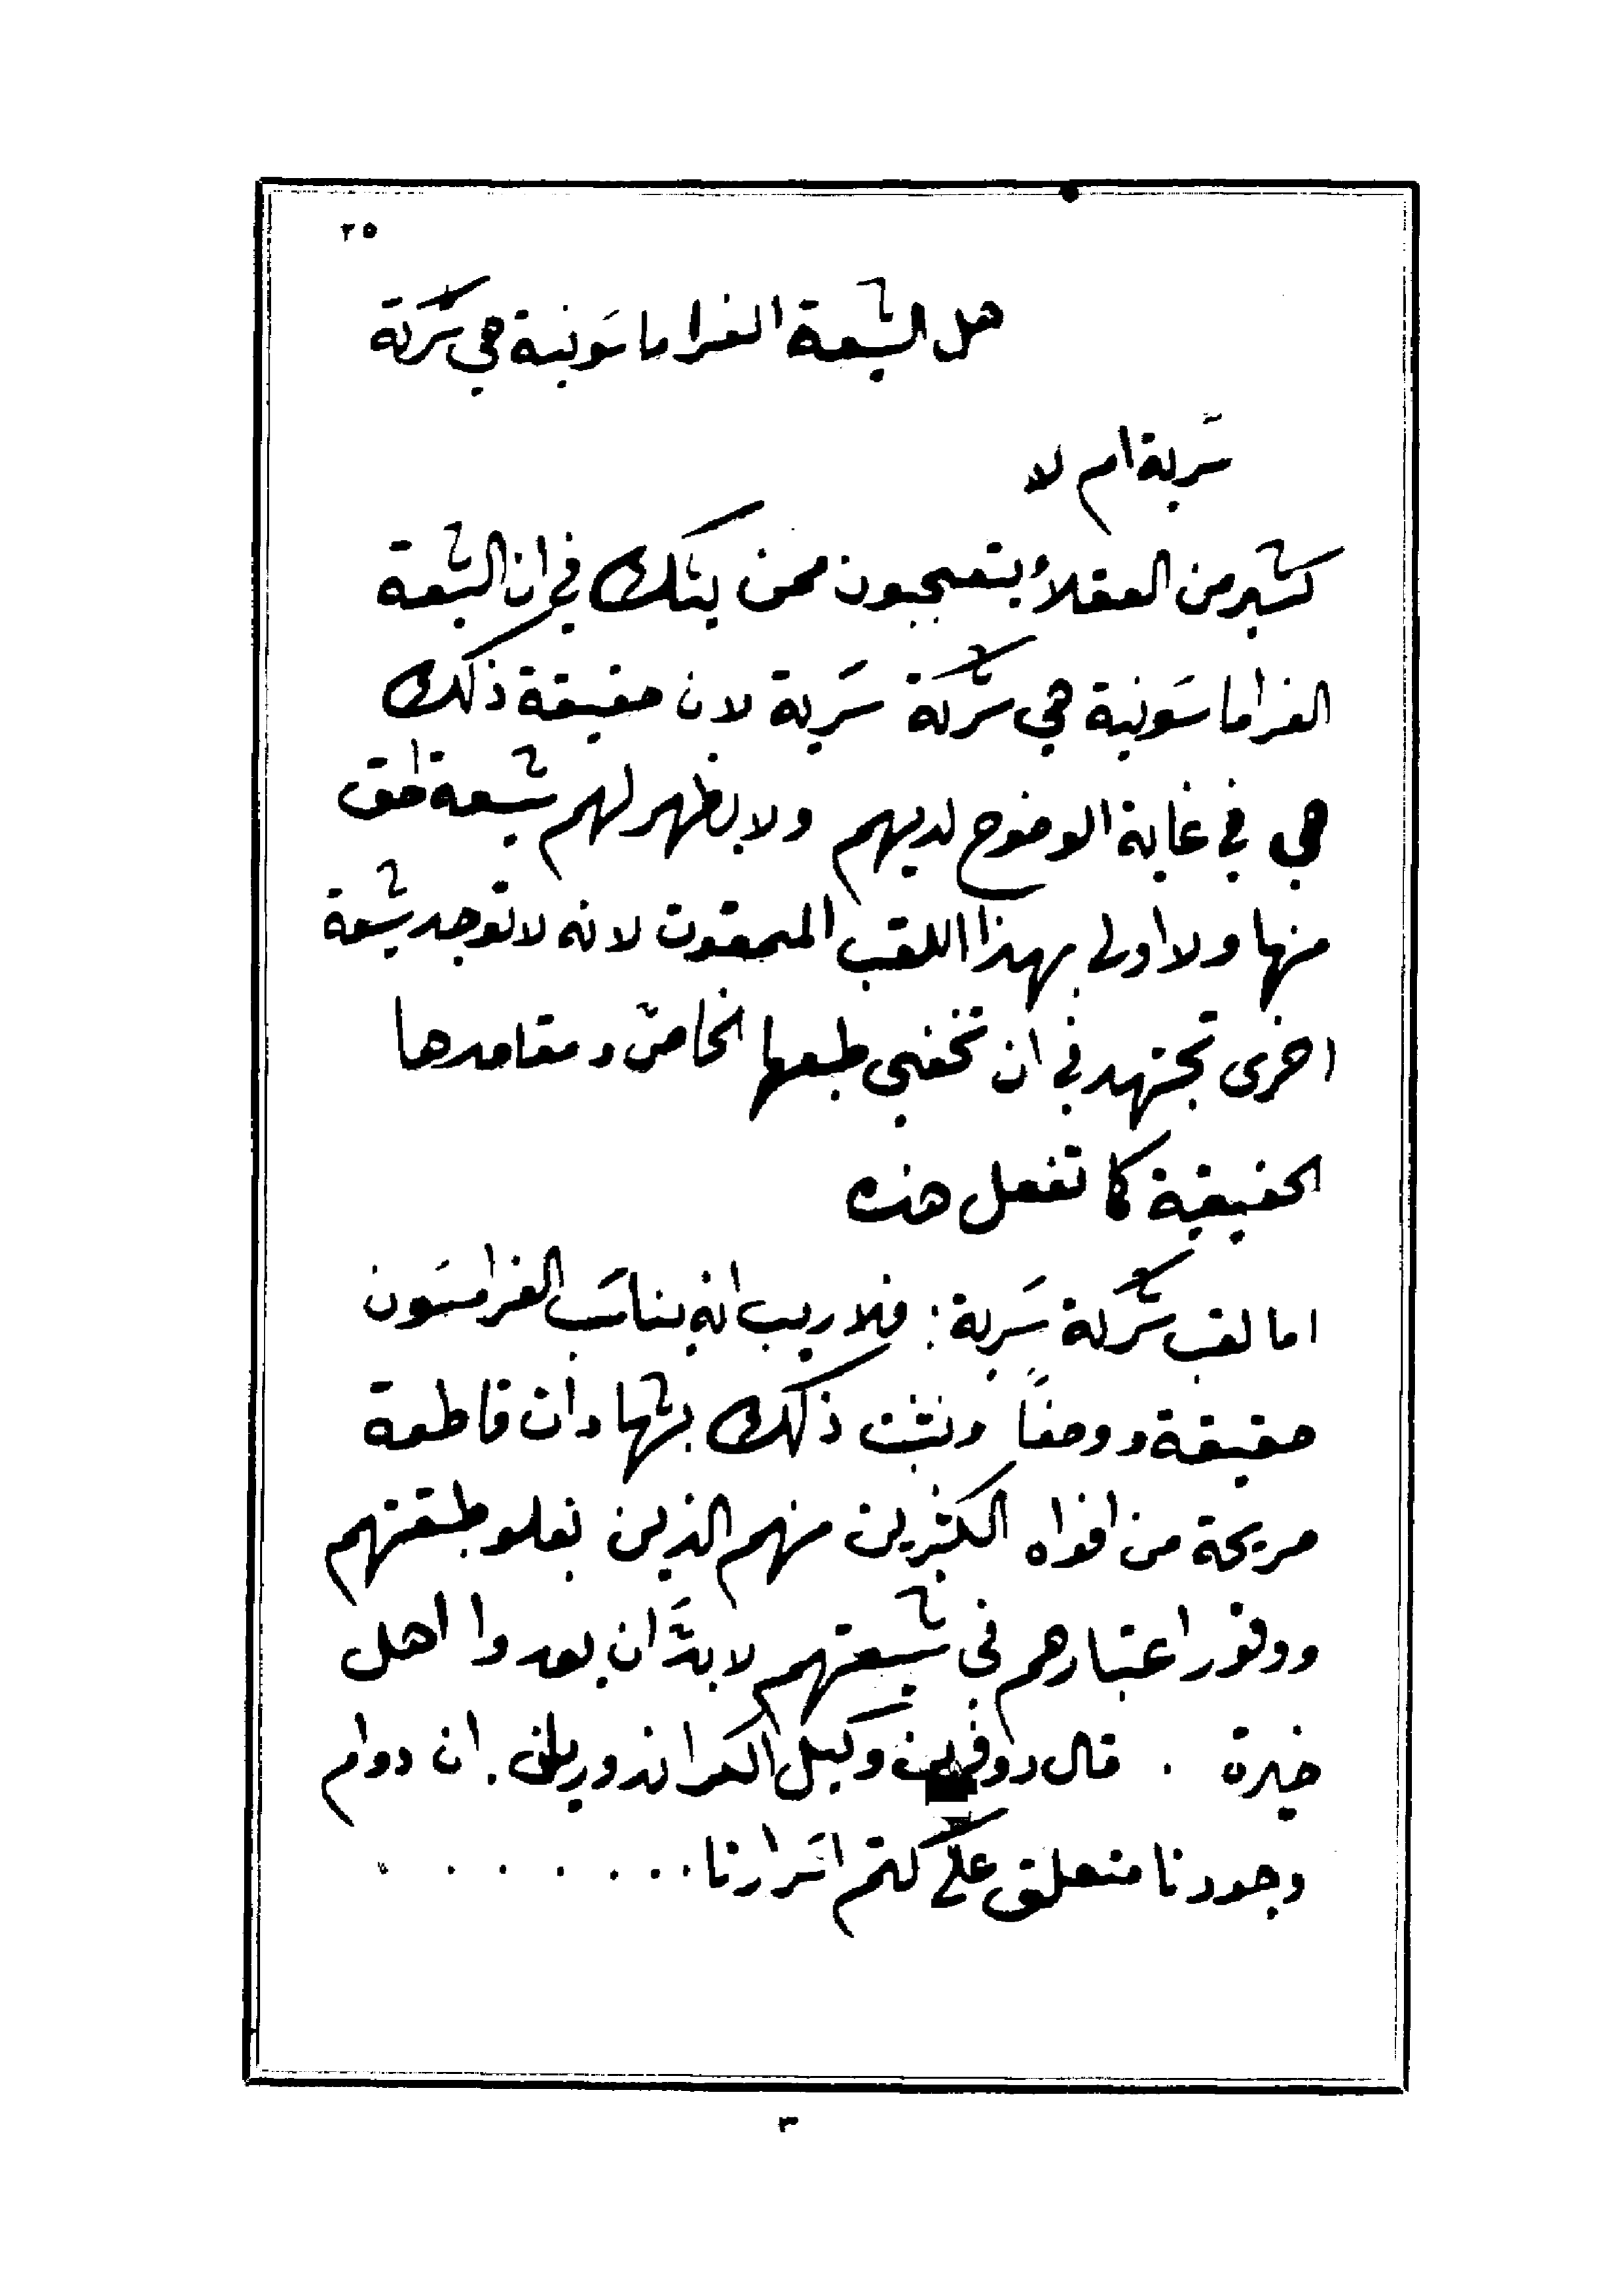 ٢٥
هل الشيعة الفراماسونية هي شركة
سرية ام لا
كثير من العقلاء يتعجبون ممن يشك في ان الشيعة
الفراماسونية هي شركة سرية لان حقيقة ذلك
هي في غاية الوضوح لديهم ولا يظهر لهم شيعة احق
منها ولا اولى بهذا اللقب الممقوت لانه لا توجد شيعة
اخرى تجتهد في ان تخفي طبعها الخاص ومقاصدها
الحقيقية كما تفعل هذه
اما لقب شركة سرية : فلا ريب انه يناسب الفرامسون
حقيقة ووصفاً ونثبت ذلك بشهادات قاطعة
صريحة من افواه الكثيرين منهم الذين لعلو طبقتهم
ووفور اعتبارهم في شيعتهم لا بدَّ ان يعدوا اهل
خبرة . قال وكيل الكراندوريانى . ان دوام
وجودنا متعلق على كتم اسرارنا . . . . . . . .
٣